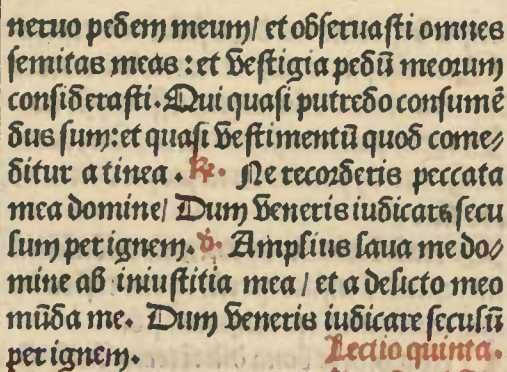 neruo pedem meum/ et obseruasti omnes
semitas meas : et vestigia pedū meorum
considerasti. Qui quasi putredo consumē
dus sum: et quasi vestimentū quod come/
ditur a tinea . ℟. Ne recorderis peccata
mea domine/ Dum veneris iudicare secu
lum per ignem. ℣. Amplius laua me do/
mine ab iniustitia mea / et a delicto meo
mūda me. Dum veneris iudicare seculū
per ignem. Lectio quinta.